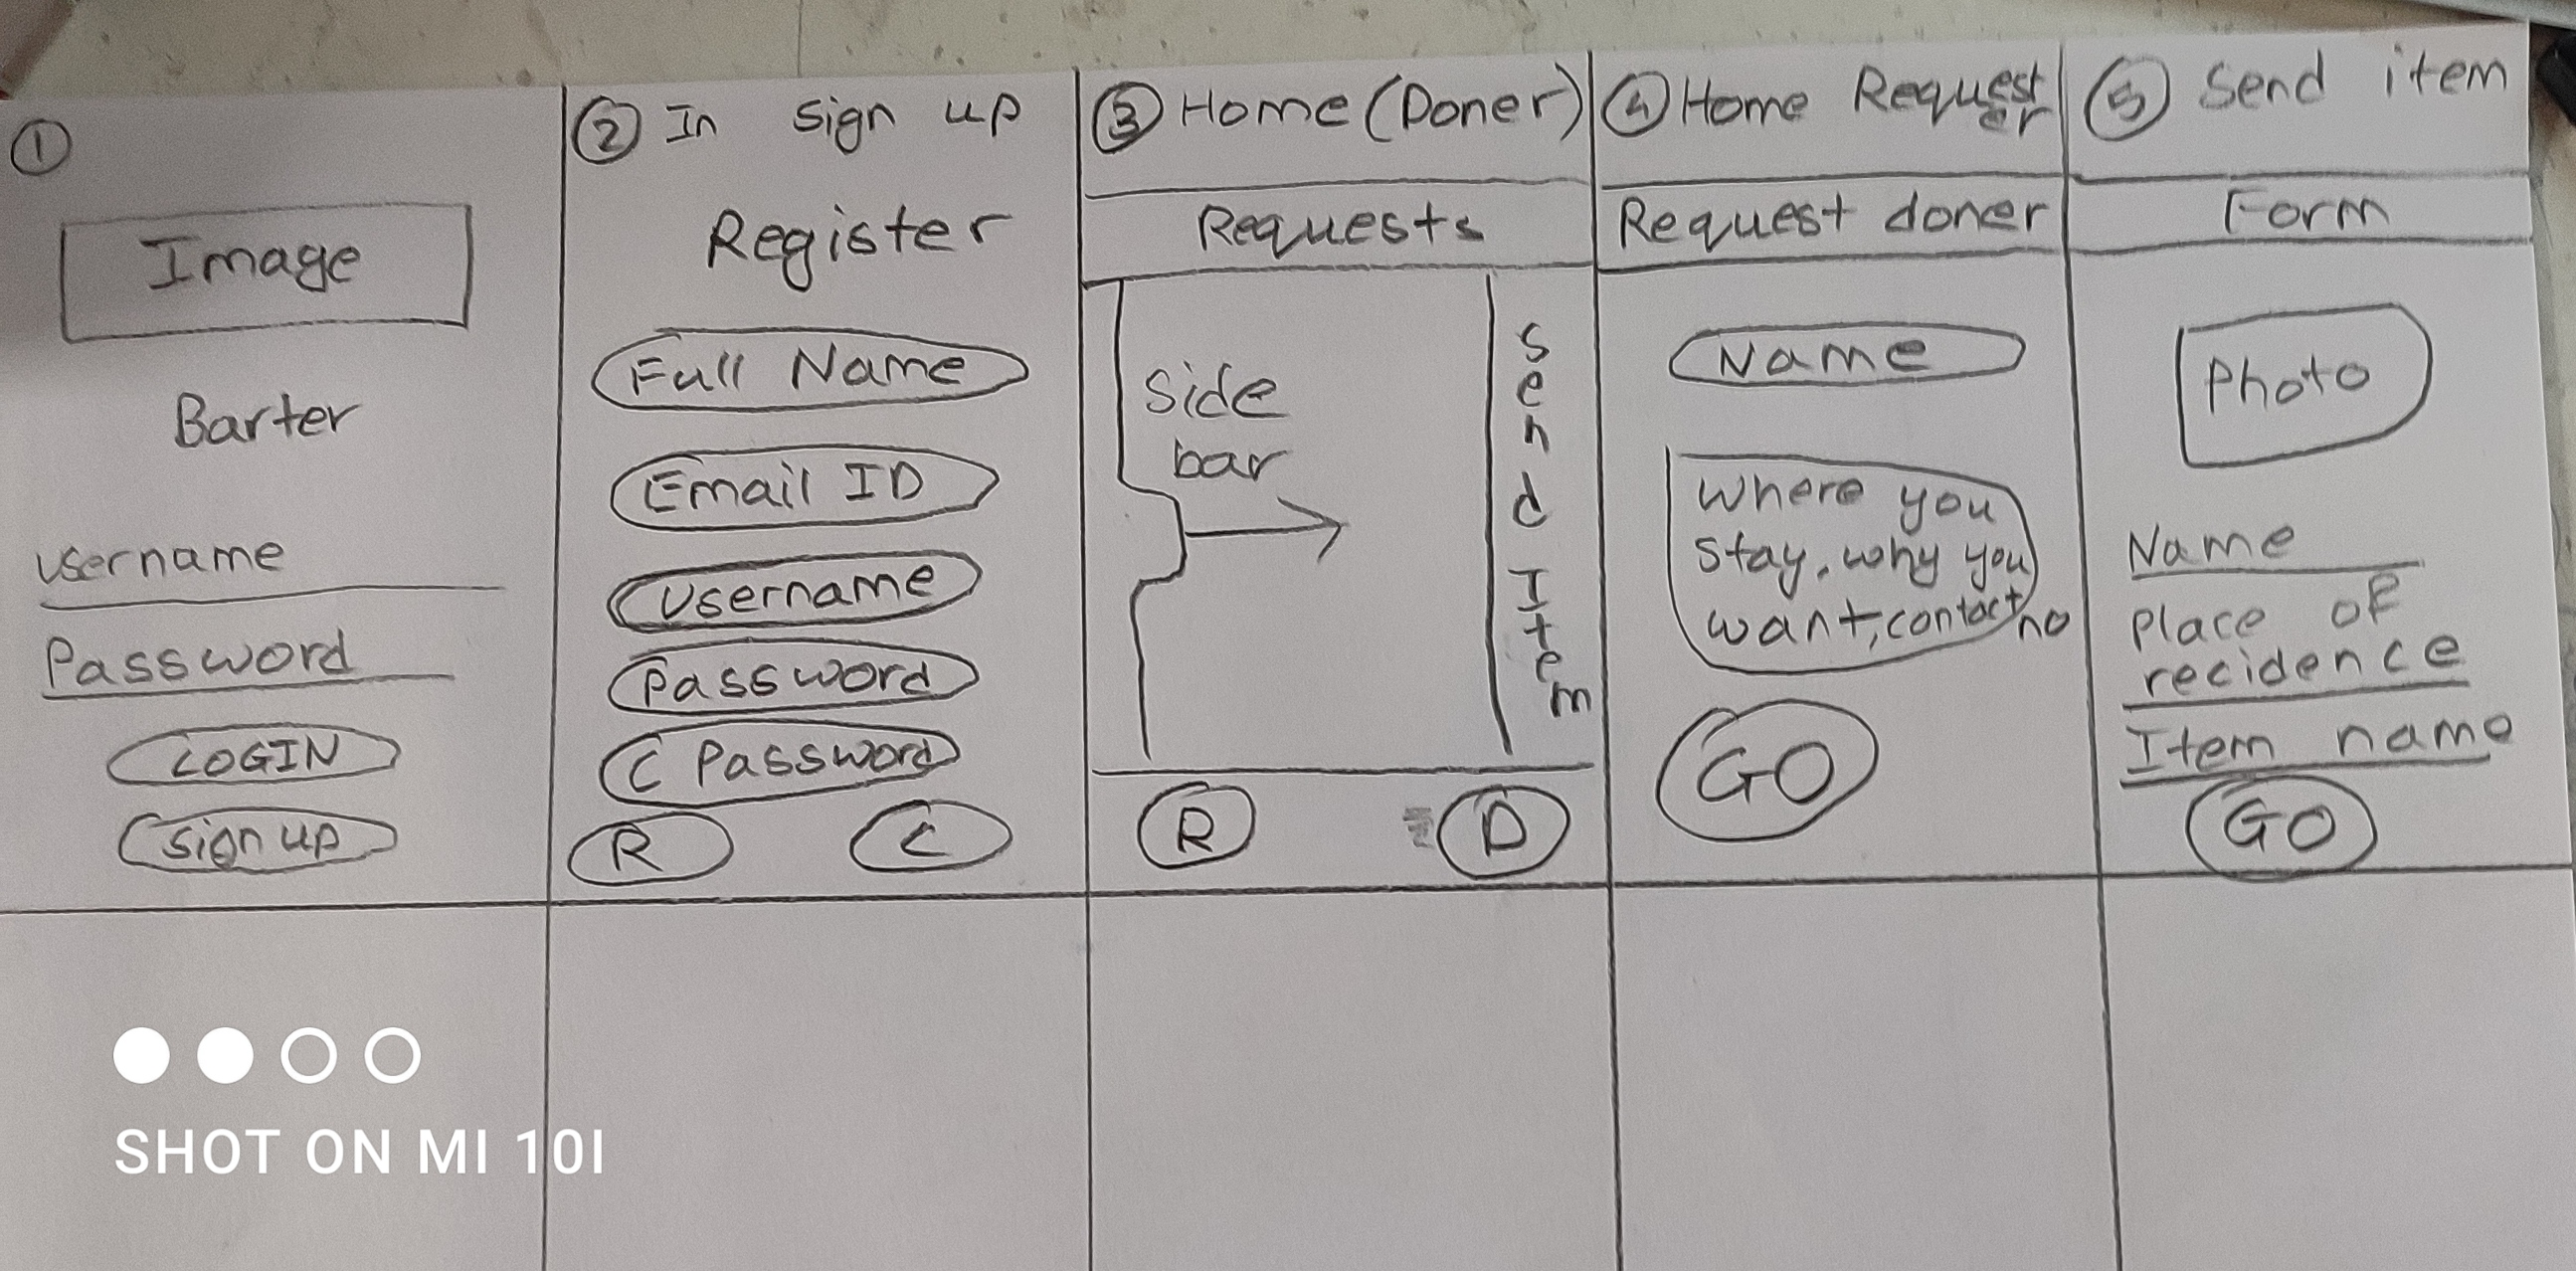 1
Image
Barter
username
Password
LOGIN
sign up
2 In sign up
Register
Full Name
Email ID
Username
Password
C Password
R C
3 Home (Doner)
Requests
Side
bar
Send Item
R D
4 Home Request
er
Request doner
Name
Where you
stay, why you
want, contact no
GO
5 Send item
Form
Photo
Name
Place of
recidence
Item name
GO
SHOT ON MI 10I